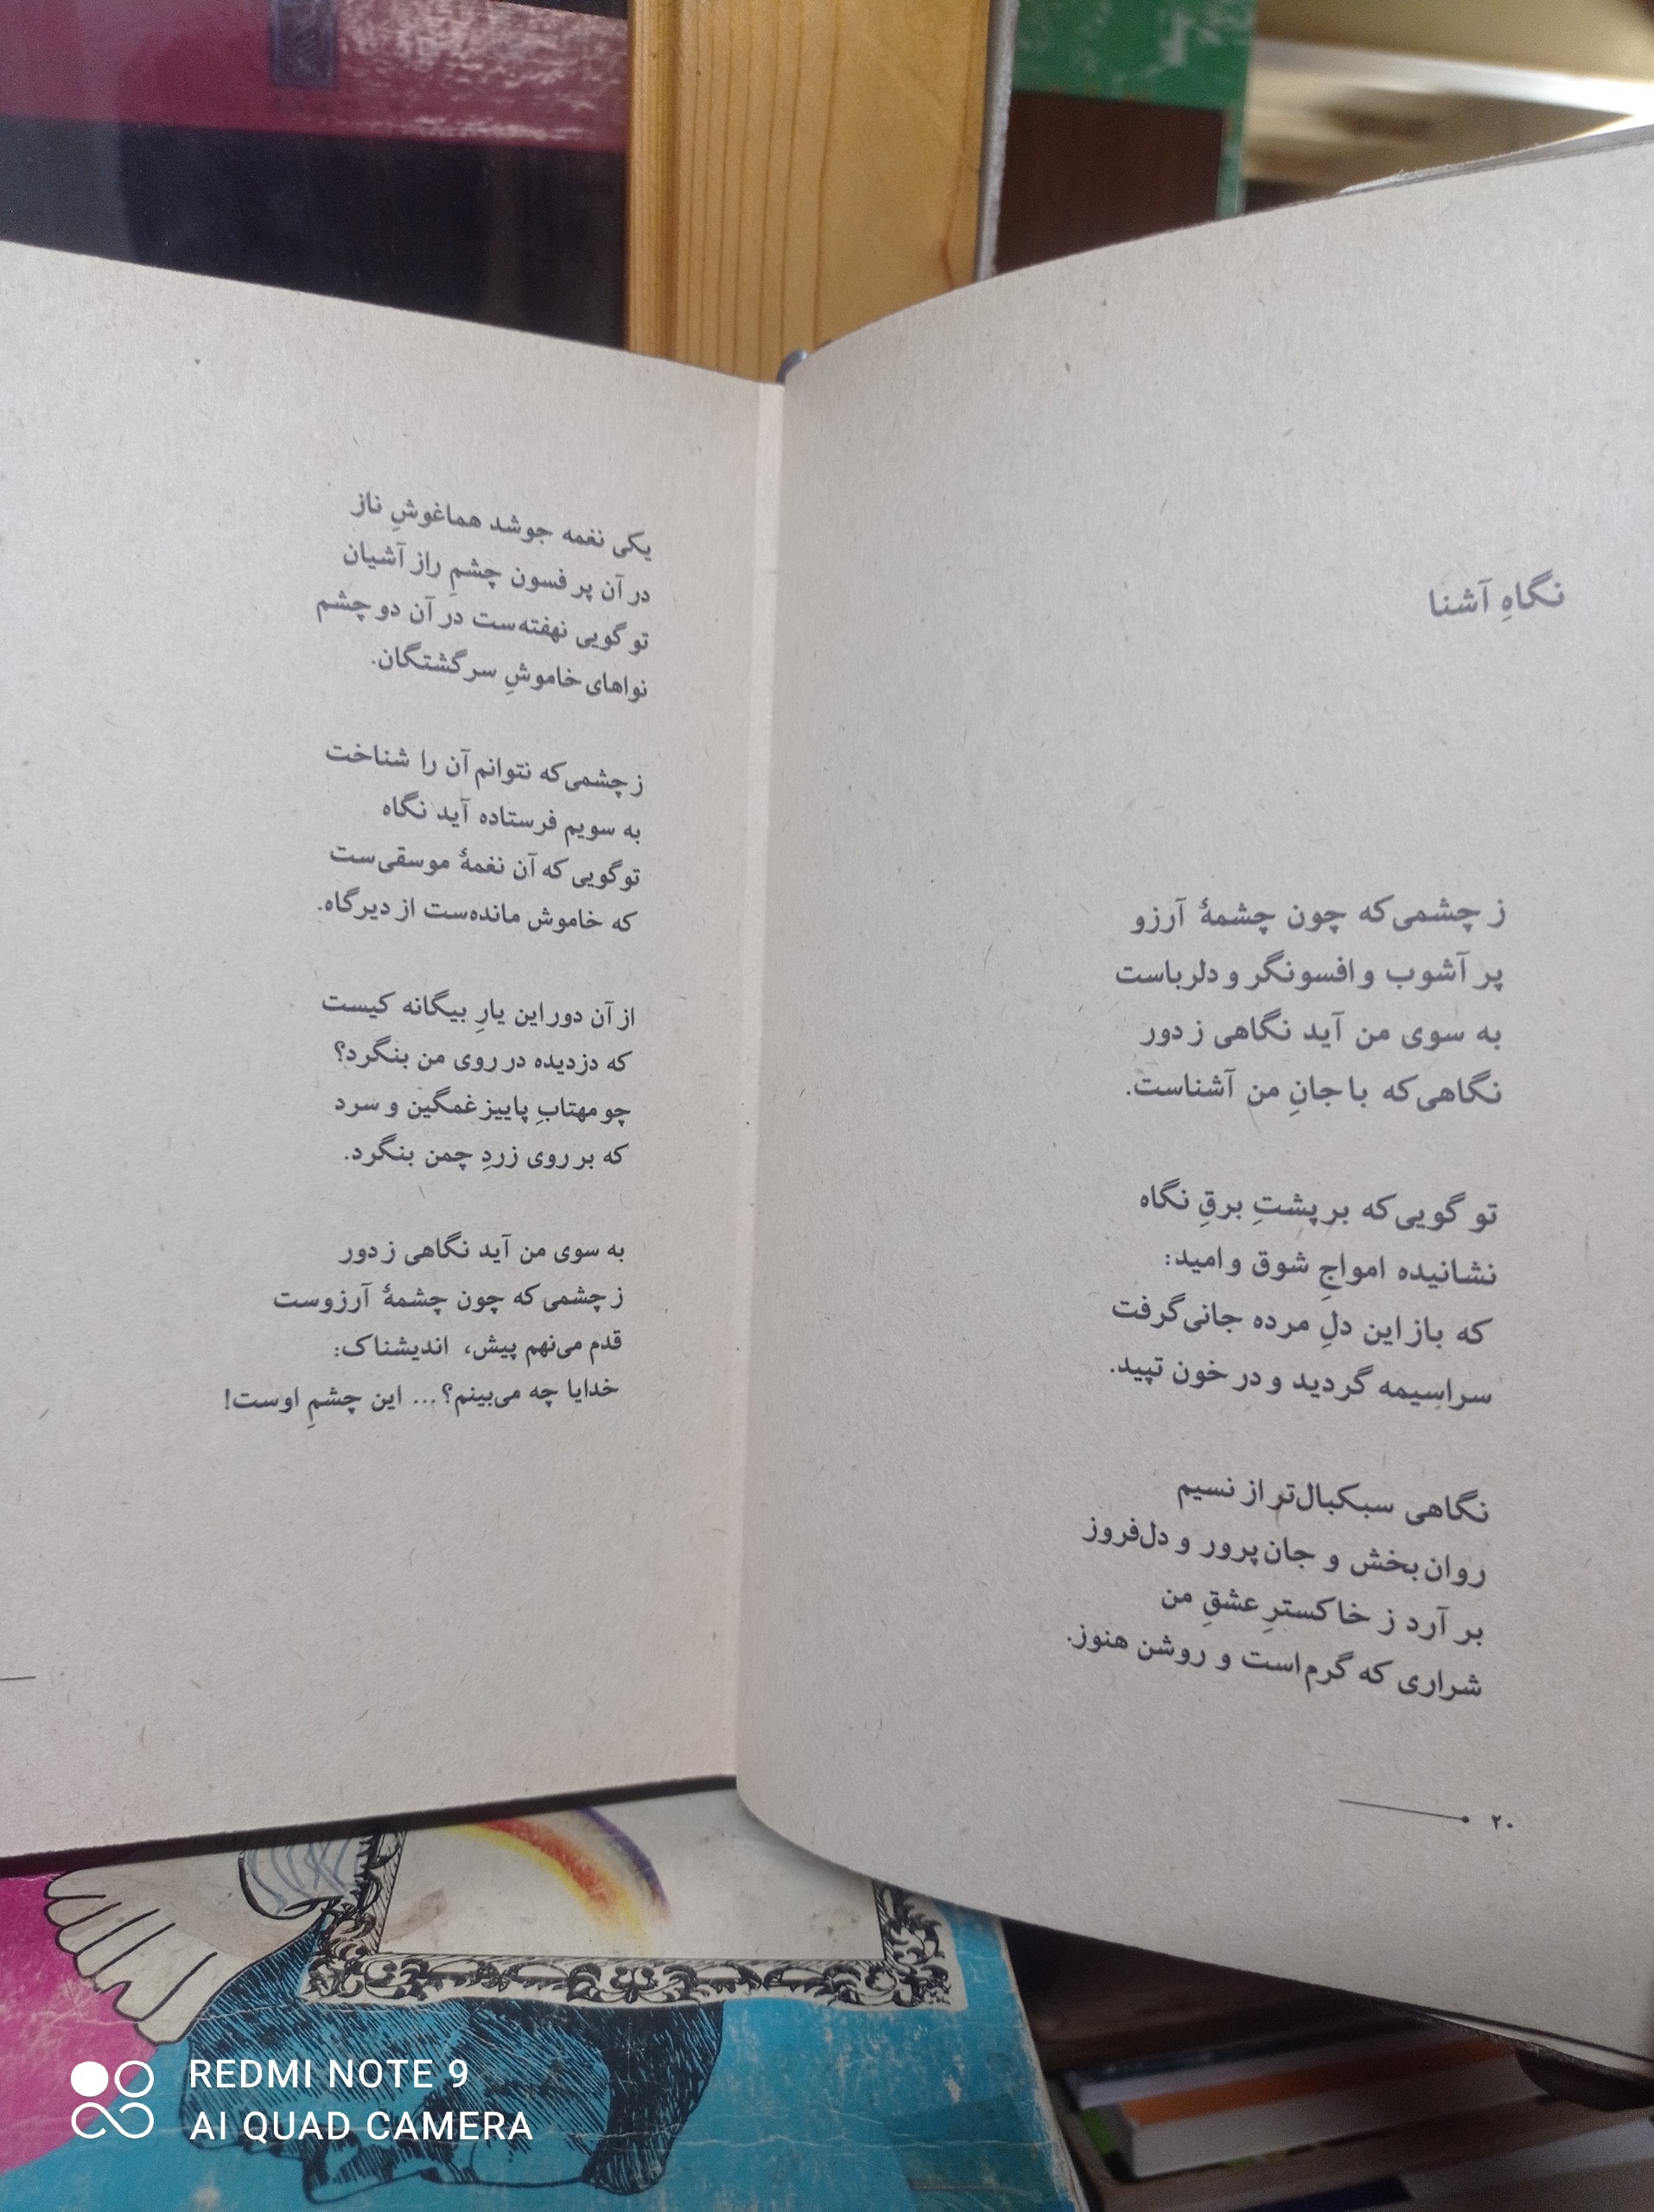 نگاهِ آشنا
ز چشمی‌که چون چشمهٔ آرزو
پر آشوب و افسونگر و دلرباست
به سوی من آید نگاهی ز دور
نگاهی‌که با جانِ من آشناست.
تو گویی‌که بر پشتِ برقِ نگاه
نشانیده امواجِ شوق و امید:
که باز این دلِ مرده جانی‌گرفت
سراسیمه گردید و در خون تپید.
نگاهی سبکبال‌تر از نسیم
روان‌بخش و جان‌پرور و دل‌فروز
بر آرد ز خاکسترِ عشقِ من
شراری که گرم است و روشن هنوز.
۲۰
یکی نغمه جوشد هماغوشِ ناز
در آن پر فسون چشمِ راز آشیان
تو گویی نهفته‌ست در آن دو چشم
نواهای خاموشِ سرگشتگان.
ز چشمی‌که نتوانم آن را شناخت
به سویم فرستاده آید نگاه
تو گویی که آن نغمهٔ موسقی‌ست
که خاموش مانده‌ست از دیرگاه.
از آن دور این یارِ بیگانه کیست
که دزدیده در روی من بنگرد؟
چو مهتابِ پاییز غمگین و سرد
که بر روی زردِ چمن بنگرد.
به سوی من آید نگاهی ز دور
ز چشمی که چون چشمهٔ آرزوست
قدم می‌نهم پیش، اندیشناک:
خدایا چه می‌بینم؟... این چشمِ اوست!
REDMI NOTE 9
AI QUAD CAMERA